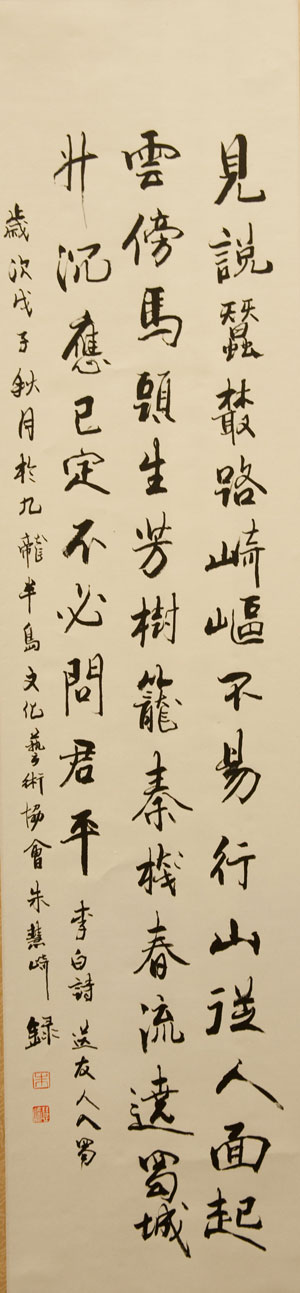 見說蠶叢路崎嶇不易行山從人面起
雲傍馬頭生芳樹籠秦棧春流遶蜀城
升沉應已定不必問君平 李白詩 送友人入蜀
歲次戊子秋月於九龍半島文化藝術協會朱慧崎錄